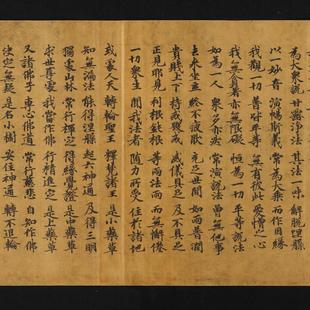 為大衆說 甘露淨法 其法一味 解脫涅槃
以一妙音 演暢斯義 常為大乘 而作因緣
我觀一切 普皆平等 無有彼此 愛憎之心
我無貪著 亦無限礙 恒為一切 平等說法
如為一人 衆多亦然 常演說法 曾無他事
去來坐立 終不疲猒 充足世間 如雨普潤
貴賤上下 持戒毀戒 威儀具足 及不具足
正見邪見 利根鈍根 等雨法雨 而無懈惓
一切衆生 聞我法者 隨力所受 住於諸地
或處人天 轉輪聖王 釋梵諸王 是小藥草
知無漏法 能得涅槃 起六神通 及得三明
獨處山林 常行禪定 得緣覺證 是中藥草
求世尊處 我當作佛 行精進定 是上藥草
又諸佛子 專心佛道 常行慈悲 自知作佛
決定無疑 是名小樹 安住神通 轉不退輪